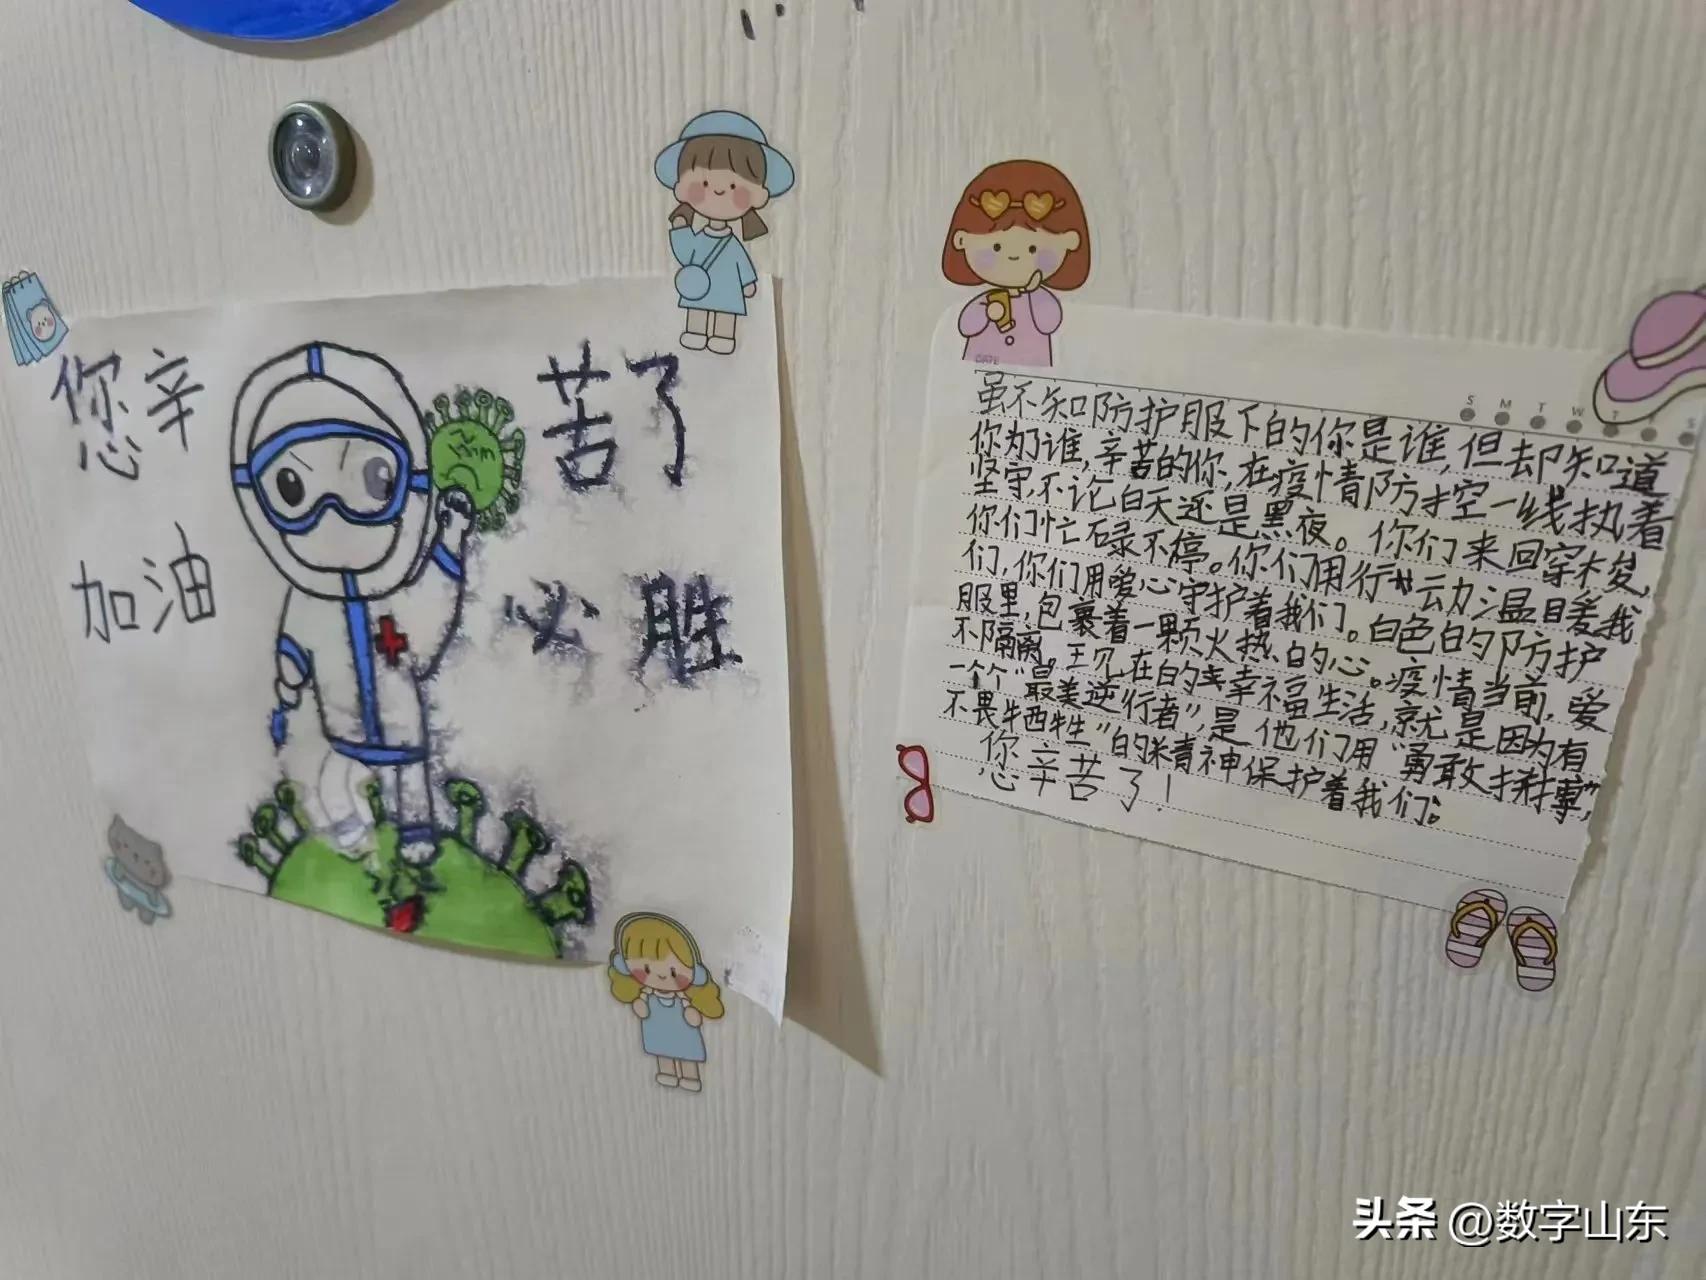 您辛
苦了
加油
必胜
DATE
S M T W T F S
虽不知防护服下的你是谁,但却知道
你为了谁,辛苦的你,在疫情防控一线执着
坚守,不论白天还是黑夜。你们来回穿梭,
你们忙碌不停。你们用行动温暖我
们,你们用爱心守护着我们。白色的防护
服里,包裹着一颗火热的心。疫情当前,爱
不隔离。现在的幸福生活,就是因为有
一个个“最美逆行者”,是他们用“勇敢拼搏,
不畏牺牲”的精神保护着我们。
您辛苦了!
头条 @数字山东